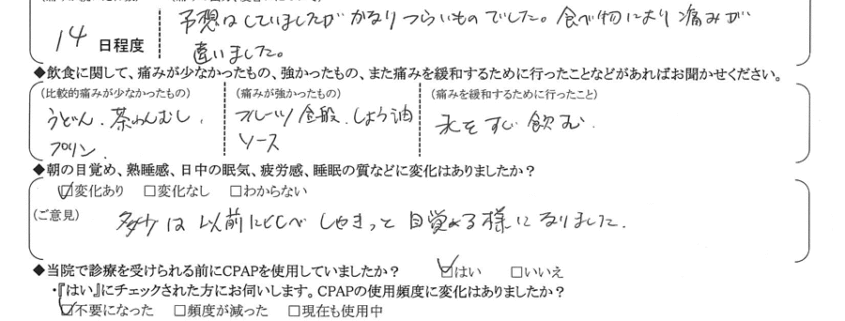 14 日程度
予想はしていましたが かなりつらいものでした。食べ物により 痛みが
違いました。
◆飲食に関して、痛みが少なかったもの、強かったもの、また痛みを緩和するために行ったことなどがあればお聞かせください。
(比較的痛みが少なかったもの) (痛みが強かったもの) (痛みを緩和するために行ったこと)
うどん、茶わんむし、 フルーツ全般、しょう油 水をすぐ飲む。
プリン、 ソース
◆朝の目覚め、熟睡感、日中の眠気、疲労感、睡眠の質などに変化はありましたか?
☑変化あり □変化なし □わからない
(ご意見) 多少は以前に比べ しゃきっと 目覚める様になりました。
◆当院で診療を受けられる前にCPAPを使用していましたか? ☑はい □いいえ
・『はい』にチェックされた方にお伺いします。CPAPの使用頻度に変化はありましたか?
☑不要になった □頻度が減った □現在も使用中